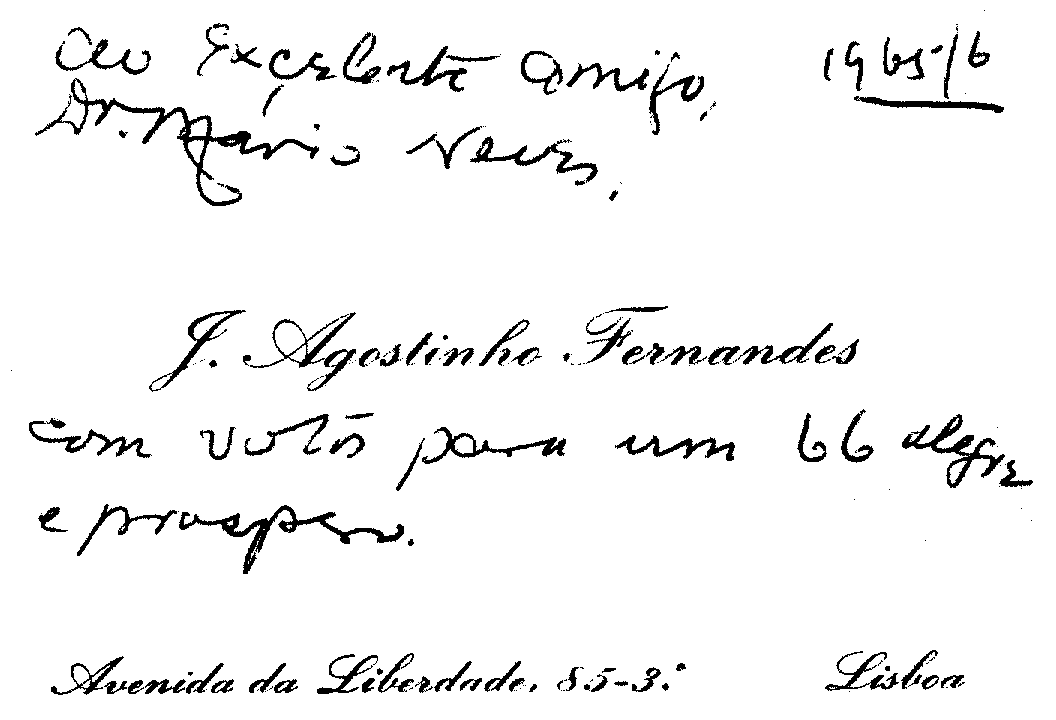 Ao Excelente amigo, 1965/6
Dr. Mário Neves.
J. Agostinho Fernandes
com votos para um 66 alegre
e prospero.
Avenida da Liberdade, 85-3.º Lisboa